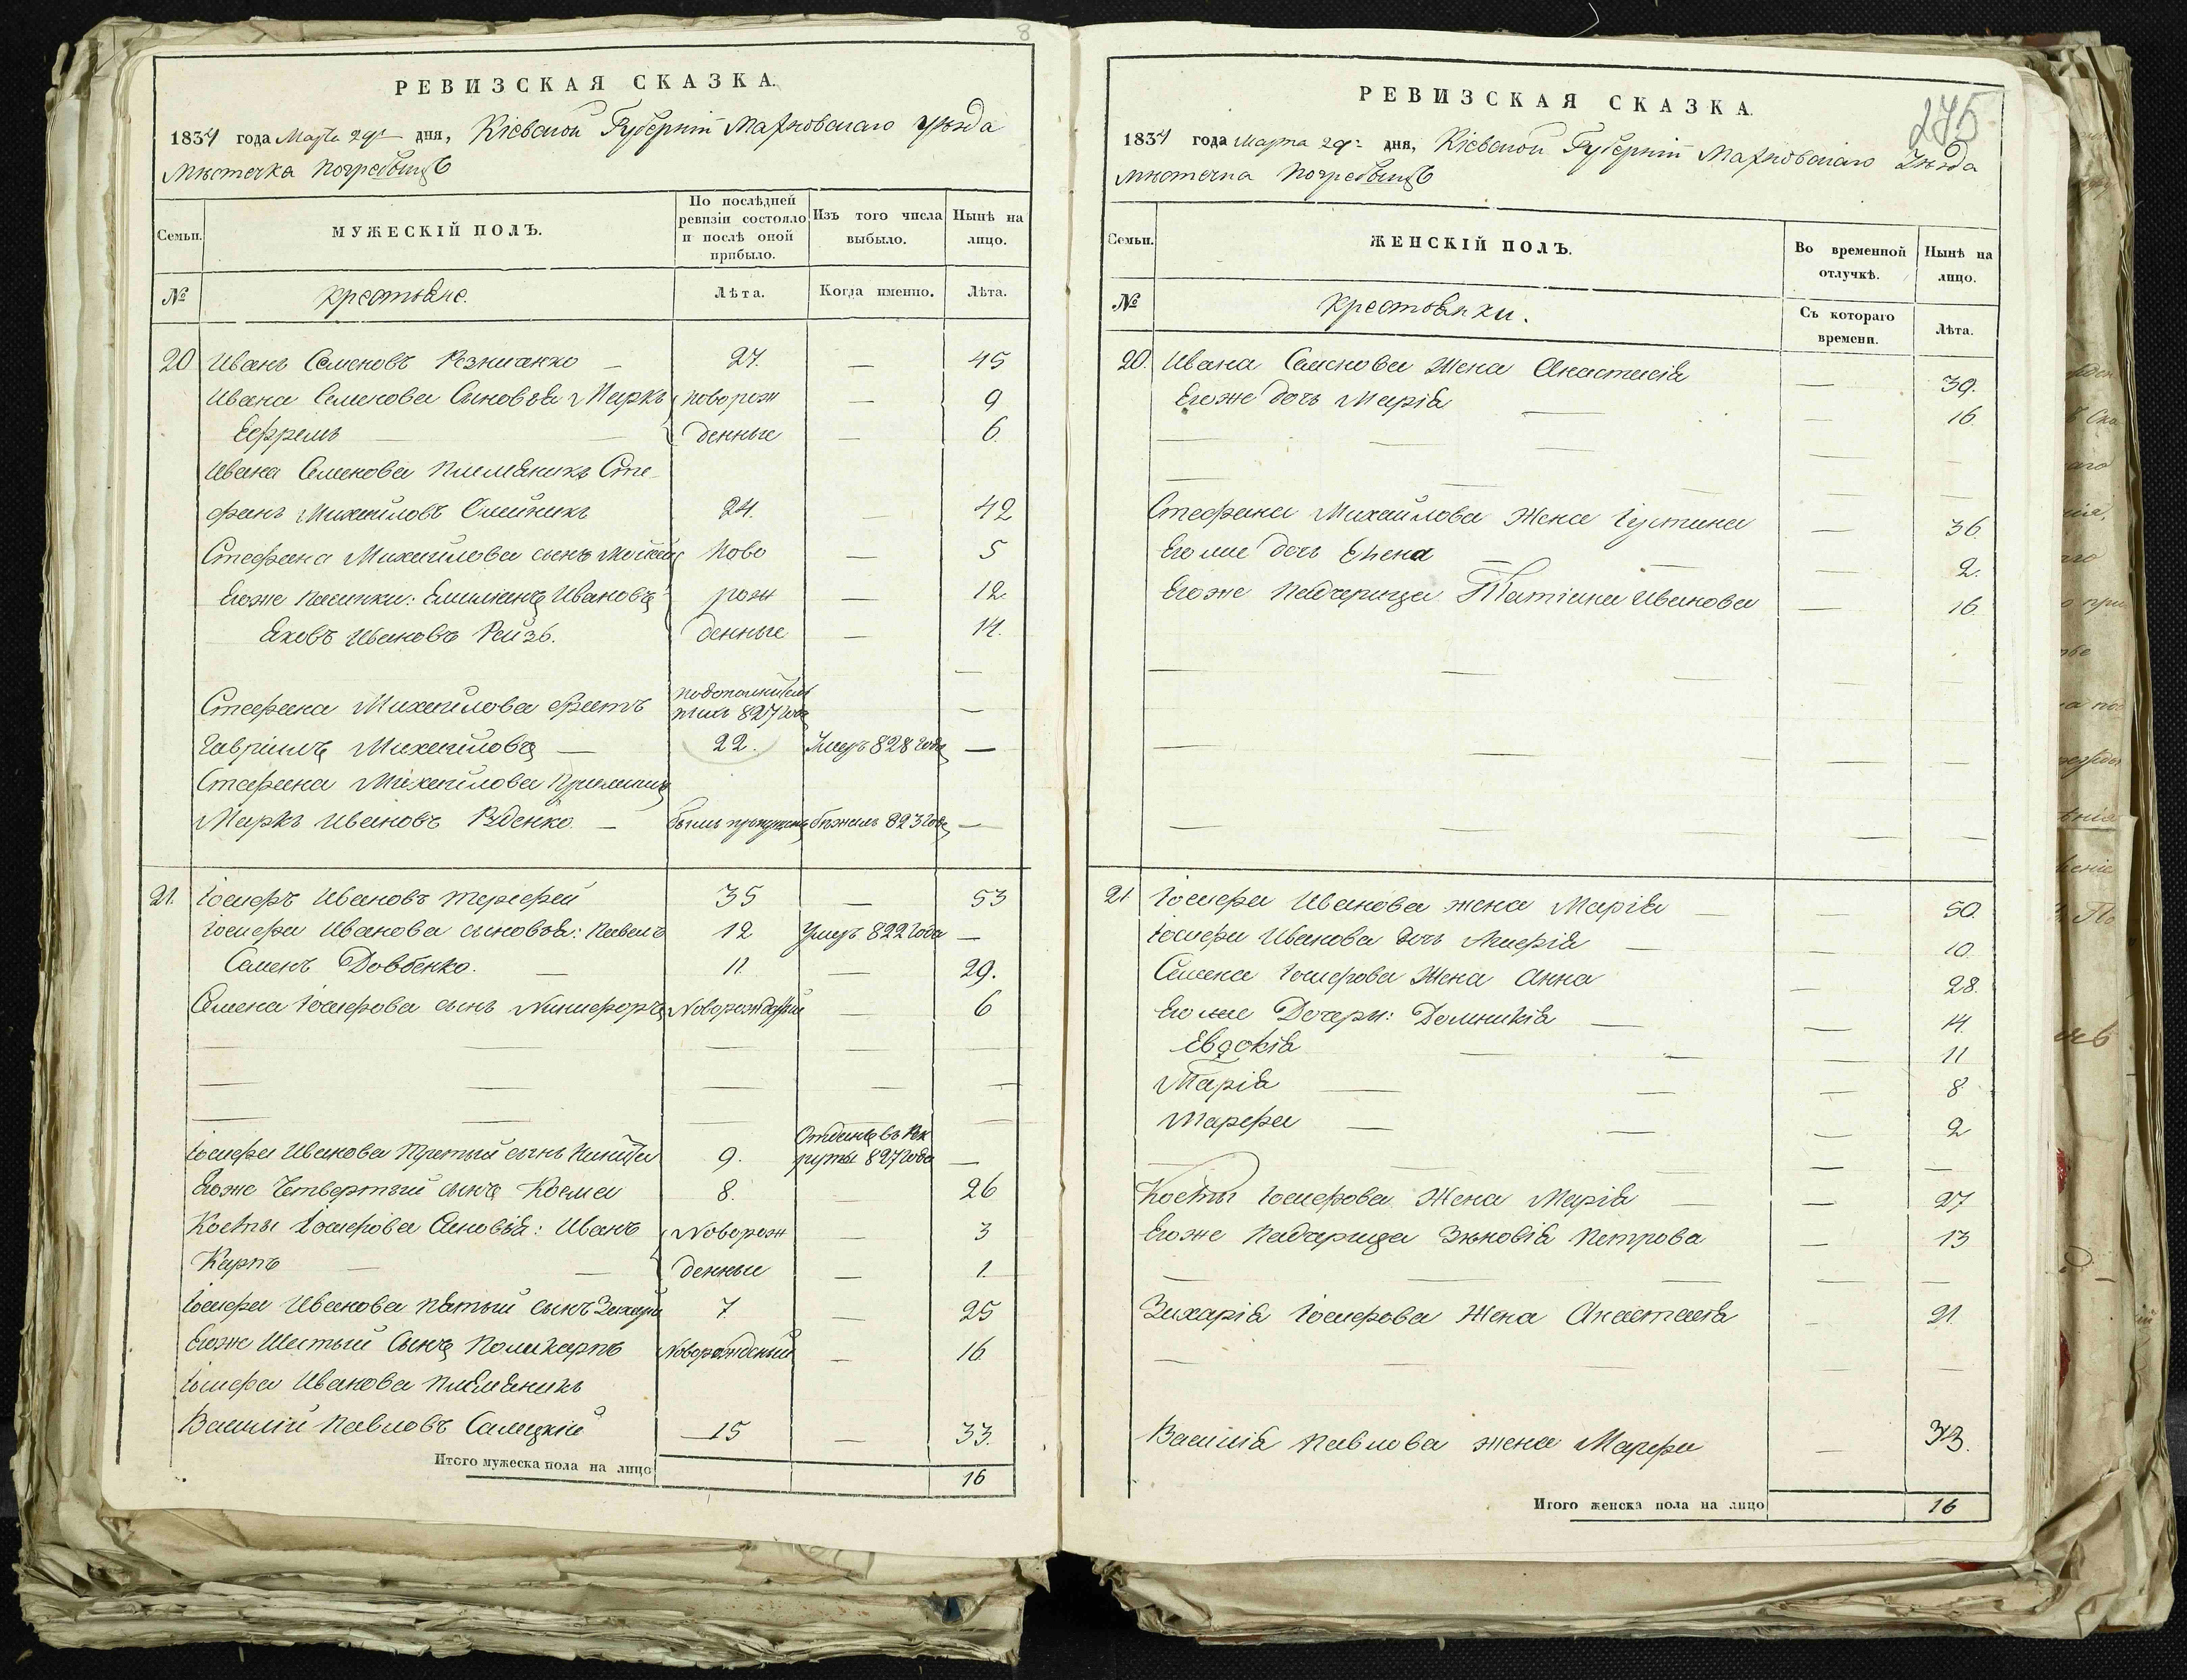 8
РЕВИЗСКАЯ СКАЗКА.
1834 года Марта 29го дня, Кіевской Губерніи Махновскаго уѣзда
Мѣстечка Погребищъ
Семьи.
МУЖЕСКІЙ ПОЛЪ.
По послѣдней ревизіи состояло и послѣ оной прибыло.
Изъ того числа выбыло.
Нынѣ на лицо.
№
Крестьяне.
Лѣта.
Когда именно.
Лѣта.
20 Иванъ Семеновъ Резниченко — 27. — 45
Ивана Семенова Сыновья Марко новорож — 9
Ефремъ — денные — 6.
Ивана Семенова племяникъ Сте
фанъ Михайловъ Олейникъ 24. — 42
Стефана Михайлова сынъ Мойсей Ново — 5
Егоже пасинки: Емилианъ Ивановъ рож — 12.
Яковъ Ивановъ денные — 14.
—
Стефана Михайлова братъ 827 года —
Гавріилъ Михайловъ — 22. Умеръ 828 года —
Стефана Михайлова
Марко Ивановъ — былъ пропущенъ бѣжалъ 823 года —
21. Іосифъ Ивановъ 35 — 53
Іосифа Иванова сыновья: Павелъ 12 Умеръ 822 года —
Семенъ Довбенко. — 11 — 29.
Семена Іосифова сынъ Никифоръ Новорожденный — 6
— — — — —
— — — — —
— — — — —
Іосифа Иванова третый сынъ Никита 9. Отданъ въ Рек
руты 827 года —
Егоже Четвертый сынъ Косма 8. — 26
Космы Іосифова Сыновья: Иванъ Новорож — 3
Карпъ — — денные — 1.
Іосифа Иванова пятый сынъ Захарій 7 — 25
Егоже Шестый Сынъ Поликарпъ Новорожденный — 16.
Іосифа Иванова племяникъ
Василій Павловъ 15 — 33.
Итого мужеска пола на лицо 16
275
РЕВИЗСКАЯ СКАЗКА.
1834 года Марта 29го дня, Кіевской Губерніи Махновскаго Уѣзда
Мѣстечка Погребищъ
Семьи.
ЖЕНСКІЙ ПОЛЪ.
Во временной отлучкѣ.
Нынѣ на лицо.
№
Крестьянки.
Съ котораго времени.
Лѣта.
20. Ивана Семенова Жена Анастасія — 39.
Егоже дочь Марія — — 16.
— — — — —
— — — —
Стефана Михайлова Жена Іустина — 36.
Егоже дочь Елена — — 2.
Егоже Падчерица Татіана Иванова — 16
— — — —
— — — —
— — — —
— — — —
21 Іосифа Иванова жена Марія — — 50.
Іосифа Иванова дочь — — 10.
Семена Іосифова Жена Анна — 28.
Егоже Дочеры: Домникія — — 14.
Евдокія — — — 11
Марія — — — 8
Марфа — — — 2
— — — — —
Космы Іосифова Жена Марія — — 27
Егоже Падчерица Зѣновія Петрова — 13
— — — — —
Захарія Іосифова Жена Анастасія — 21
— — — —
Василія Павлова жена Марфа —
Итого женска пола на лицо 16